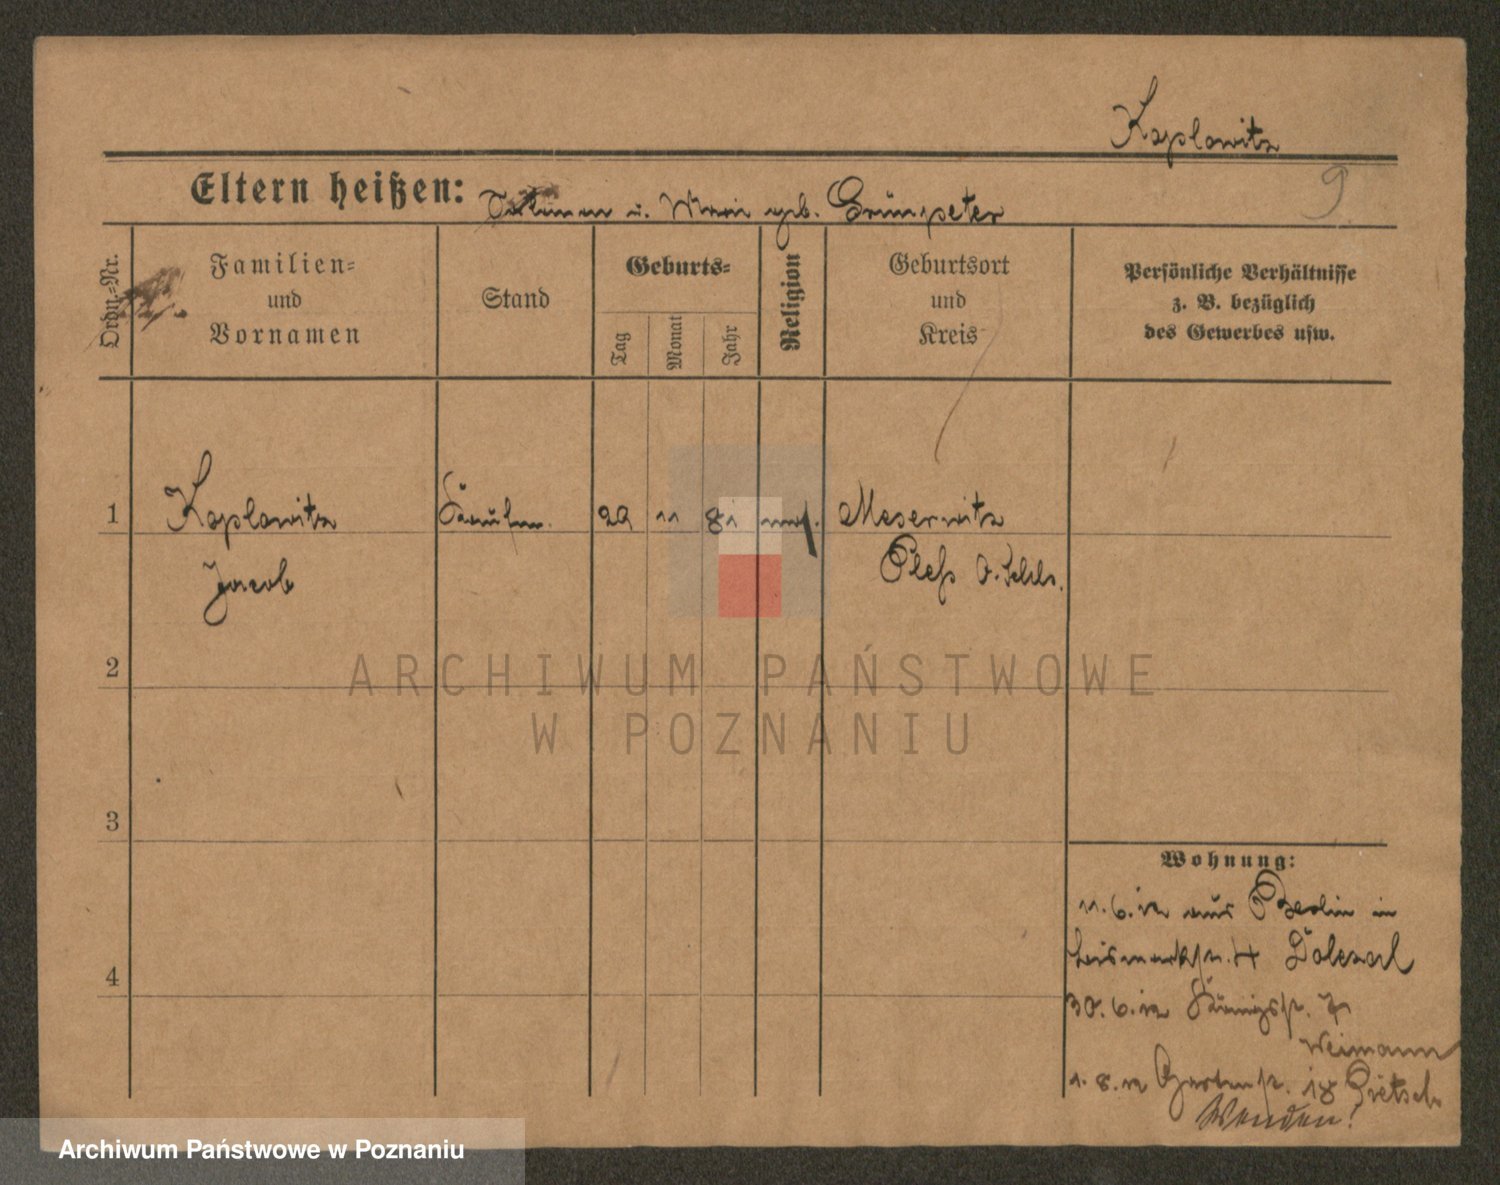 Kaplowitz
9
Eltern heißen: u. Marie geb. Grünpeter
Ordn.-Nr.
Familien-
und
Vornamen
Stand
Geburts-
Tag
Monat
Jahr
Religion
Geburtsort
und
Kreis
Persönliche Verhältnisse
z. B. bezüglich
des Gewerbes usw.
1 Kaplowitz Kaufm. 29 11 81 mos. Meserwitz
Jacob Pleß O. Schls.
2
ARCHIWUM PAŃSTWOWE
W POZNANIU
3
Wohnung:
11.6.12 aus Berlin in
Bismarckstr. 4 Dolezal
4
30.6.12 Königstr. 7
Weimann
1.8.12 Gartenstr. 18 Pietsch
Wenden!
Archiwum Państwowe w Poznaniu